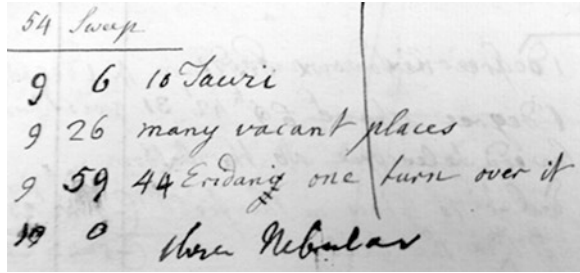 54 Sweep
9 6 10 Tauri
9 26 many vacant places
9 59 44 Eridani one turn over it
10 0 three Nebulae